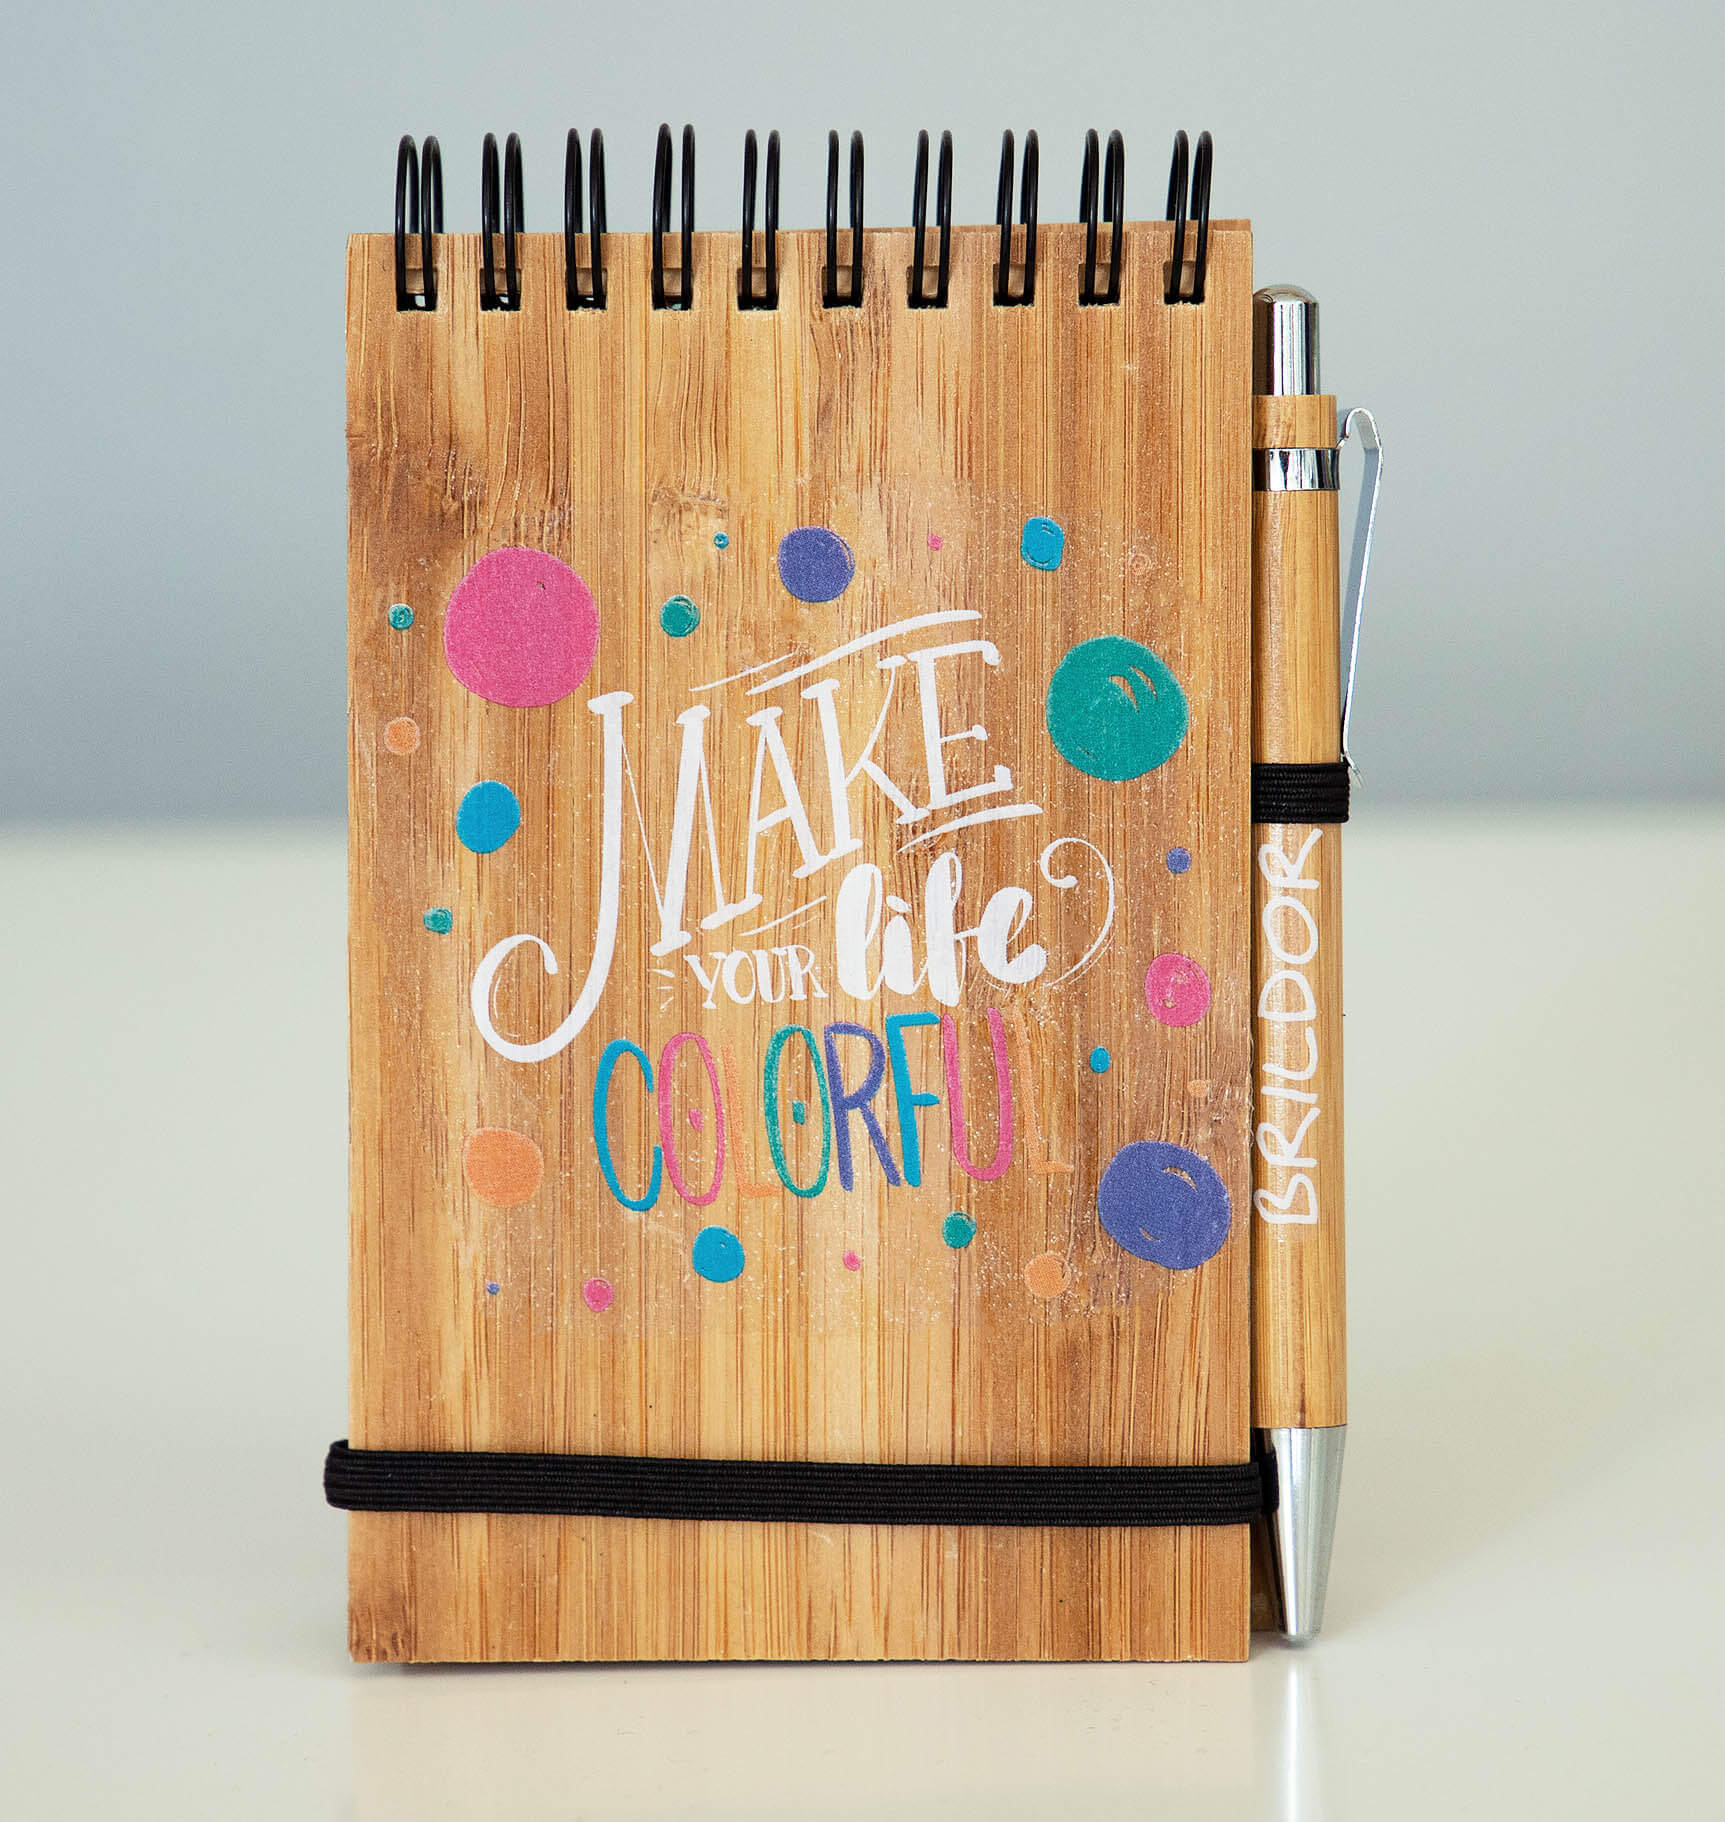 MAKE
YOUR life
COLORFUL
BRILDOR